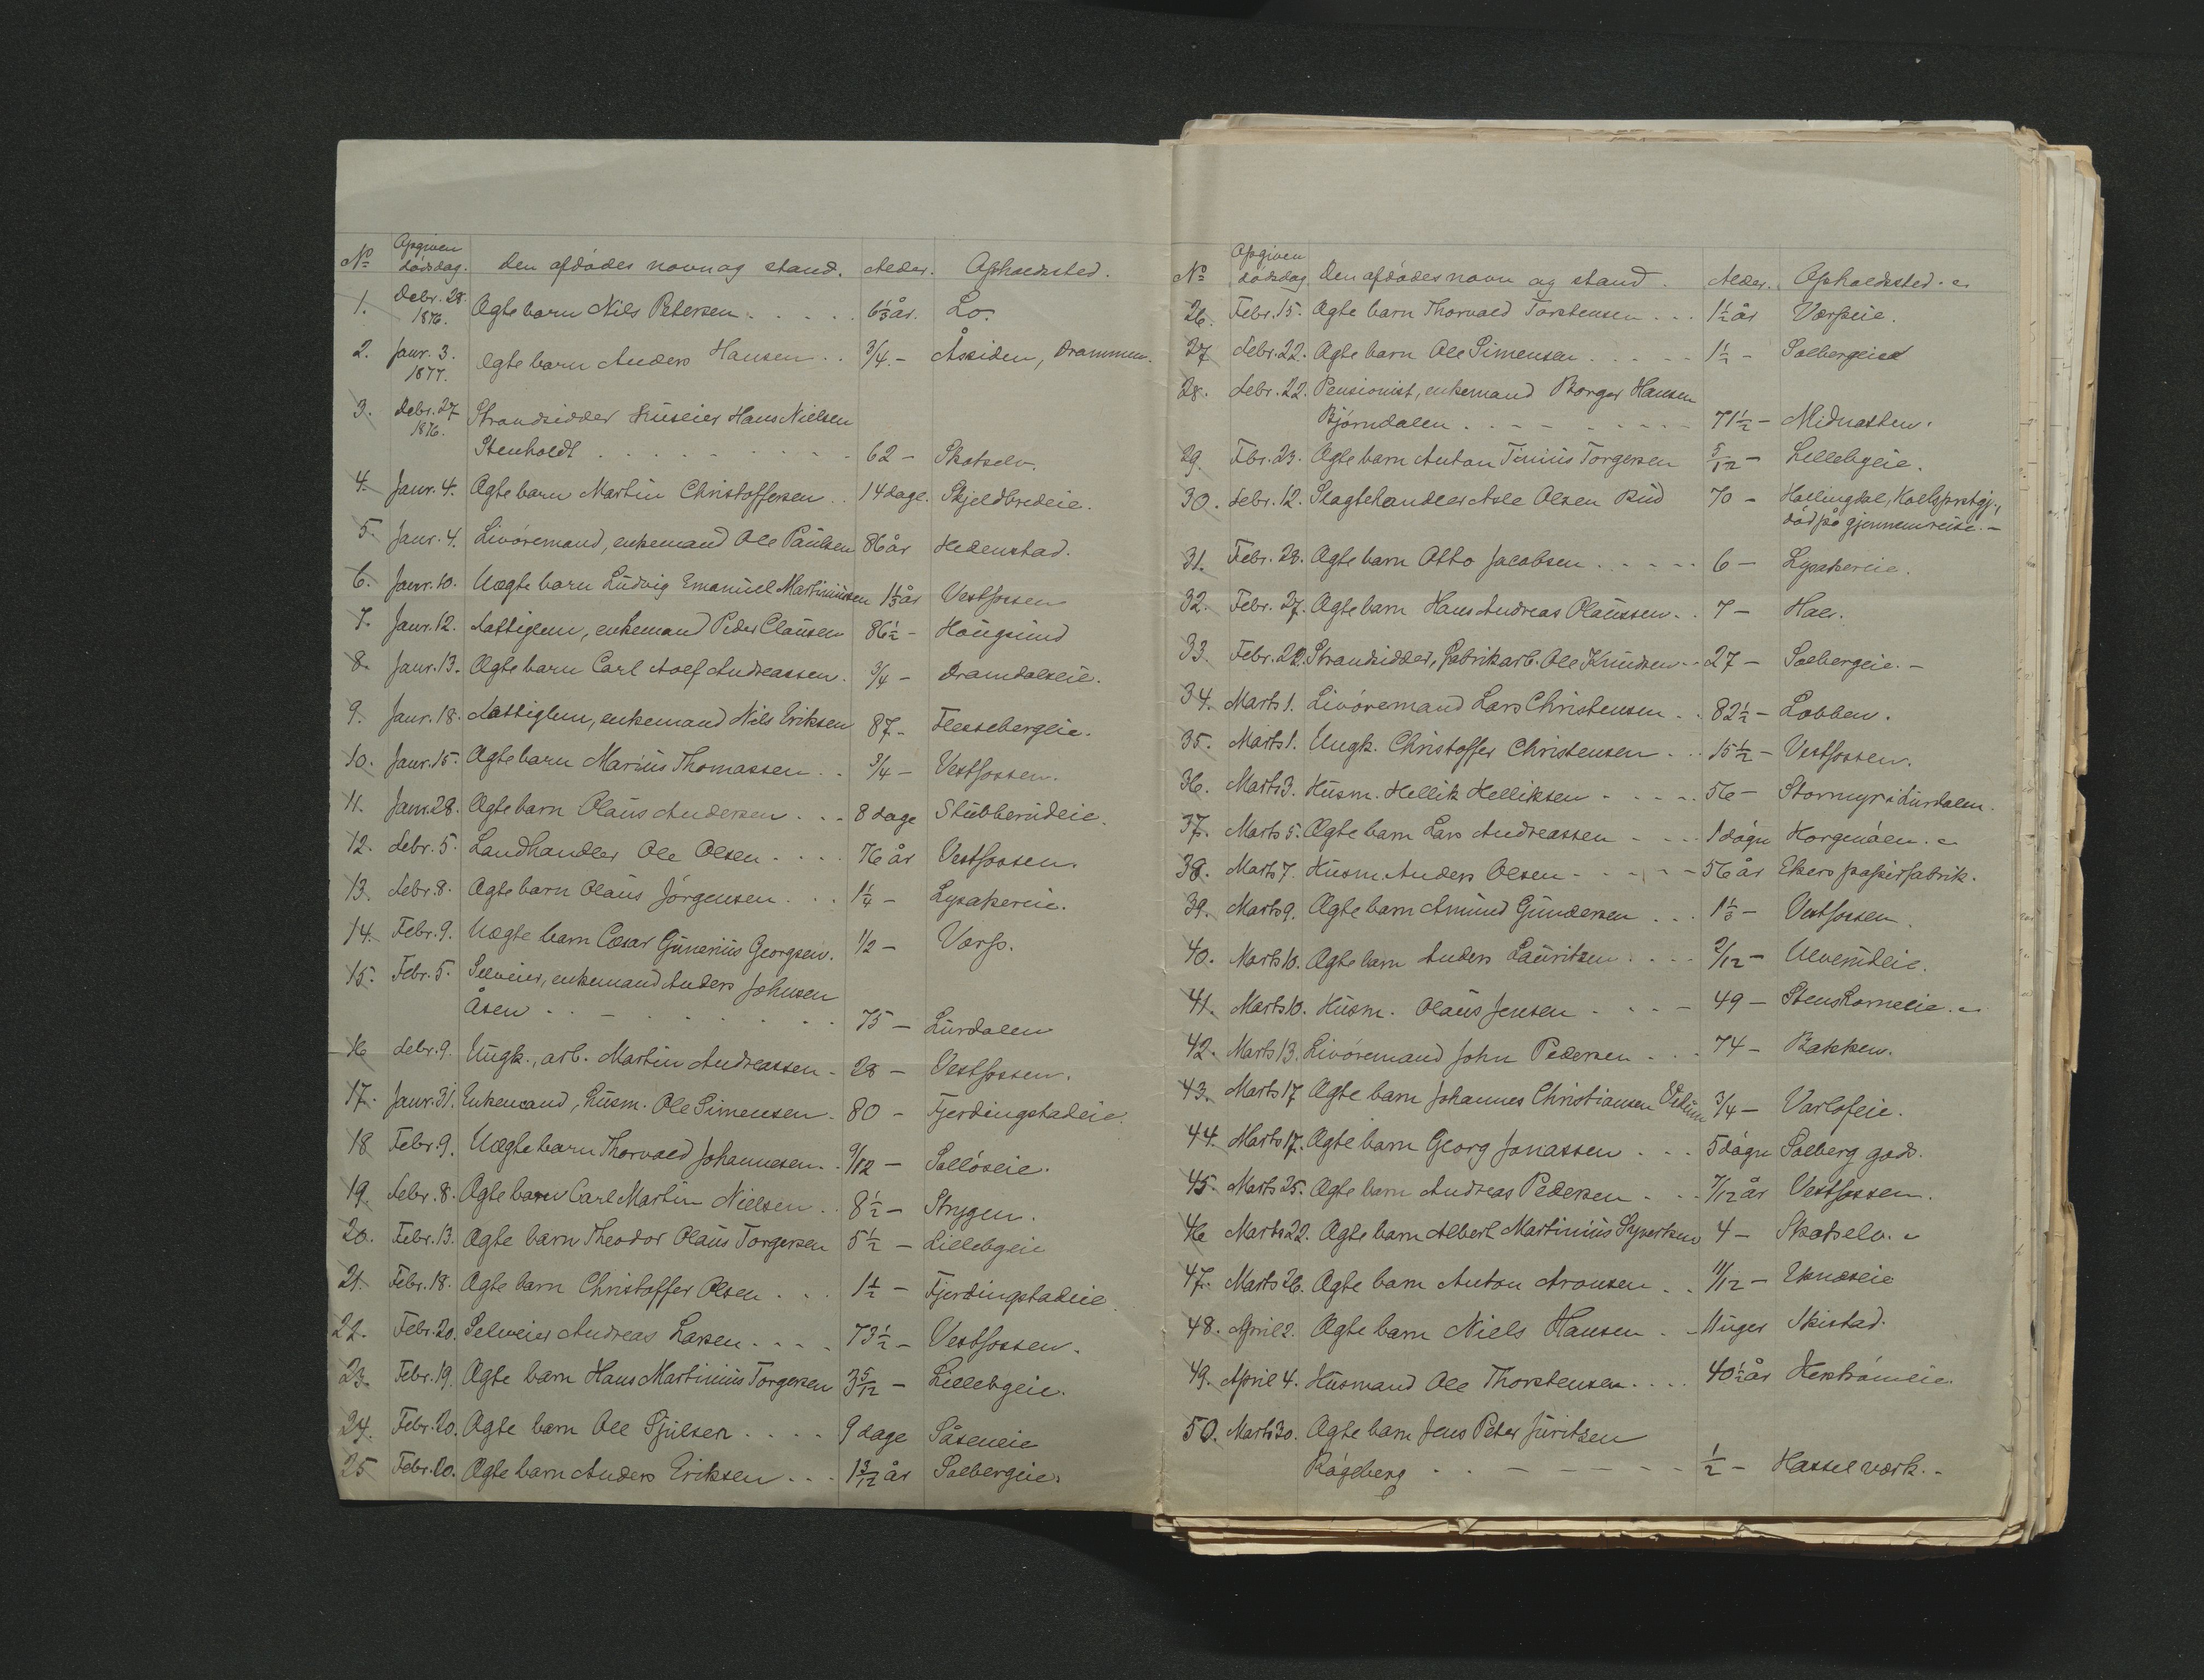 No Opgiven dødsdag. Den afdødes navn og stand. Alder. Opholdssted.
1. Debr. 28. 1876. Ægte barn Nils Petersen 6 1/3 år. Lo.
2. Janr. 3. 1877. Ægte barn Anders Hansen 3/4 - Åssiden, Drammen.
3. Debr. 27 1876. Strandsidder Huseier Hans Nielsen
Stenholdt 62 - Skotselv.
4. Janr. 4. Ægte barn Martin Christoffersen 14 dage. Skjeldbredeie.
5. Janr. 4. Livøremand, enkemand Ole Paulsen 86 år Hedenstad.
6. Janr. 10. Uægte barn Ludvig Emanuel Martiniusen 1 1/3 år Vestfossen
7. Janr. 12. Fattiglem, enkemand Peder Clausen 86 1/2 - Hougsund
8. Janr. 13. Ægte barn Carl Adolf Andreassen. 3/4 - Dramdalseie.
9. Janr. 18. Fattiglem, enkemand Nils Eriksen 87 - Flessebergeie.
10. Janr. 15. Ægte barn Marius Thomassen 3/4 - Vestfossen.
11. Janr. 28. Ægte barn Olaus Andersen 8 dage Stubberudeie.
12. Febr. 5. Landhandler Ole Olsen 76 år Vestfossen.
13. Febr. 8. Ægte barn Olaus Jørgensen 1 1/4 - Lysakereie.
14. Febr. 9. Uægte barn Cæsar Gunerius Georgsen. 1/2 - Værp.
15. Febr. 5. Selveier, enkemand Anders Johnsen
Åsen 75 - Lurdalen
16 Febr. 9. Ungk., arb. Martin Andreassen - 28 - Vestfossen.
17. Janr. 31. Enkemand, husm. Ole Simensen - 80 - Fjerdingstadeie.
18 Febr. 9. Uægte barn Thorvald Johannesen 9/12 - Solløseie.
19. Febr. 8. Ægte barn Carl Martin Nielsen 8 1/2 - Strygen.
20. Febr. 13. Ægte barn Theodor Olaus Torgersen 5 1/2 - Lillebgeie
21. Febr. 18. Ægte barn Christoffer Olsen 1 1/2 - Fjerdingstadeie
22. Febr. 20. Selveier Andreas Larsen 73 1/2 - Vestfossen.
23. Febr. 19. Ægte barn Hans Martinius Torgersen 3 5/12 - Lillebgeie.
24. Febr. 20. Ægte barn Ole Gjulsen 9 dage Såseneie
25 Febr. 20. Ægte barn Anders Eriksen 1 3/12 år Solbergeie.
No Opgiven dødsdag Den afdødes navn og stand. Alder. Opholdssted.
26. Febr. 15. Ægte barn Thorvald Torstensen 1 1/2 år Værpeie.
27 Febr. 22. Ægte barn Ole Simensen 1 1/2 - Solbergeie
28. Febr. 22. Pensionist, enkemand Borger Hansen
Bjørndalen 71 1/2 - Midnatten.
29. Fbr. 23. Ægte barn Anton Tinius Torgersen 5/12 - Lillebgeie.
30. Febr. 12. Slagtehandler Asle Olsen Rud 70 - Hallingdal,
død på gjennemreise. -
31. Febr. 28. Ægte barn Otto Jacobsen 6 - Lysakereie.
32. Febr. 27. Ægte barn Hans Andreas Olaussen 7 - Hals.
33. Febr. 22. Strandsidder, fabrikarb. Ole Knudsen 27 - Solbergeie. -
34. Marts 1. Livøremand Lars Christensen 82 1/2 - Lobben.
35. Marts 1. Ungk. Christoffer Christensen 15 1/2 - Vestfossen.
36. Marts 3. Husm. Hellik Helliksen 56 - Stormyr i Lurdalen.
37. Marts 5. Ægte barn Lars Andreassen 1 døgn Horgenåen.
38. Marts 7. Husm. Anders Olsen 56 år Ekers papirfabrik.
39. Marts 9. Ægte barn Amund Gundersen 1 1/3 - Vestfossen.
40. Marts 10. Ægte barn Anders Lauritzen 2/12 - Ulverudeie.
41. Marts 10. Husm. Olaus Jensen 49 - Stenskorneie.
42. Marts 13. Livøremand John Pedersen 74 - Bakken.
43. Marts 17 Ægte barn Johannes Christiansen 3/4 - Varlofeie.
44. Marts 17. Ægte barn Georg Jonassen 5 døgn Solberg gods.
45. Marts 25. Ægte barn Andreas Pedersen 7/12 år Vestfossen.
46 Marts 22. Ægte barn Albert Martinius Syvertsen 4 - Skotselv.
47. Marts 26. Ægte barn Anton Aronsen 11/12 - Eknæseie
48. April 2. Ægte barn Niels Hansen 11 uger Skistad.
49. April 4. Husmand Ole Thorstensen 40 1/2 år Herstrømeie.
50. Marts 30. Ægte barn Jens Peter Juritzen
Rågeberg 1/2 - Hasselværk. -